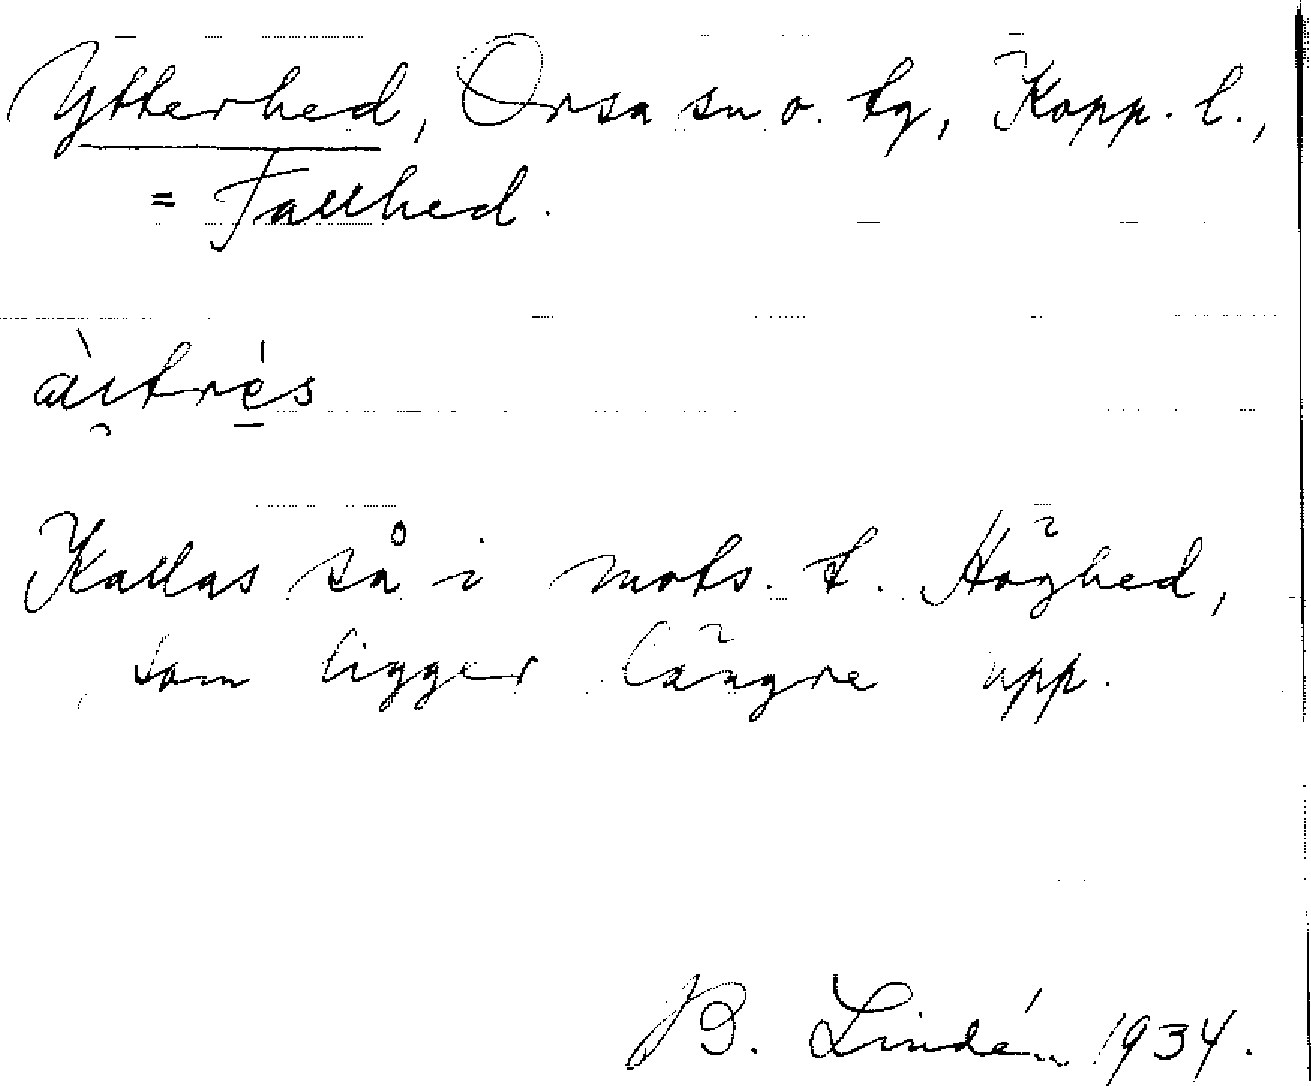 Ytterhed, Orsa sn o. tg, Kopp. l.,
= Fallhed.
Kallas så i mots. t. Höghed,
som ligger längre upp.
B. Lindén 1934.